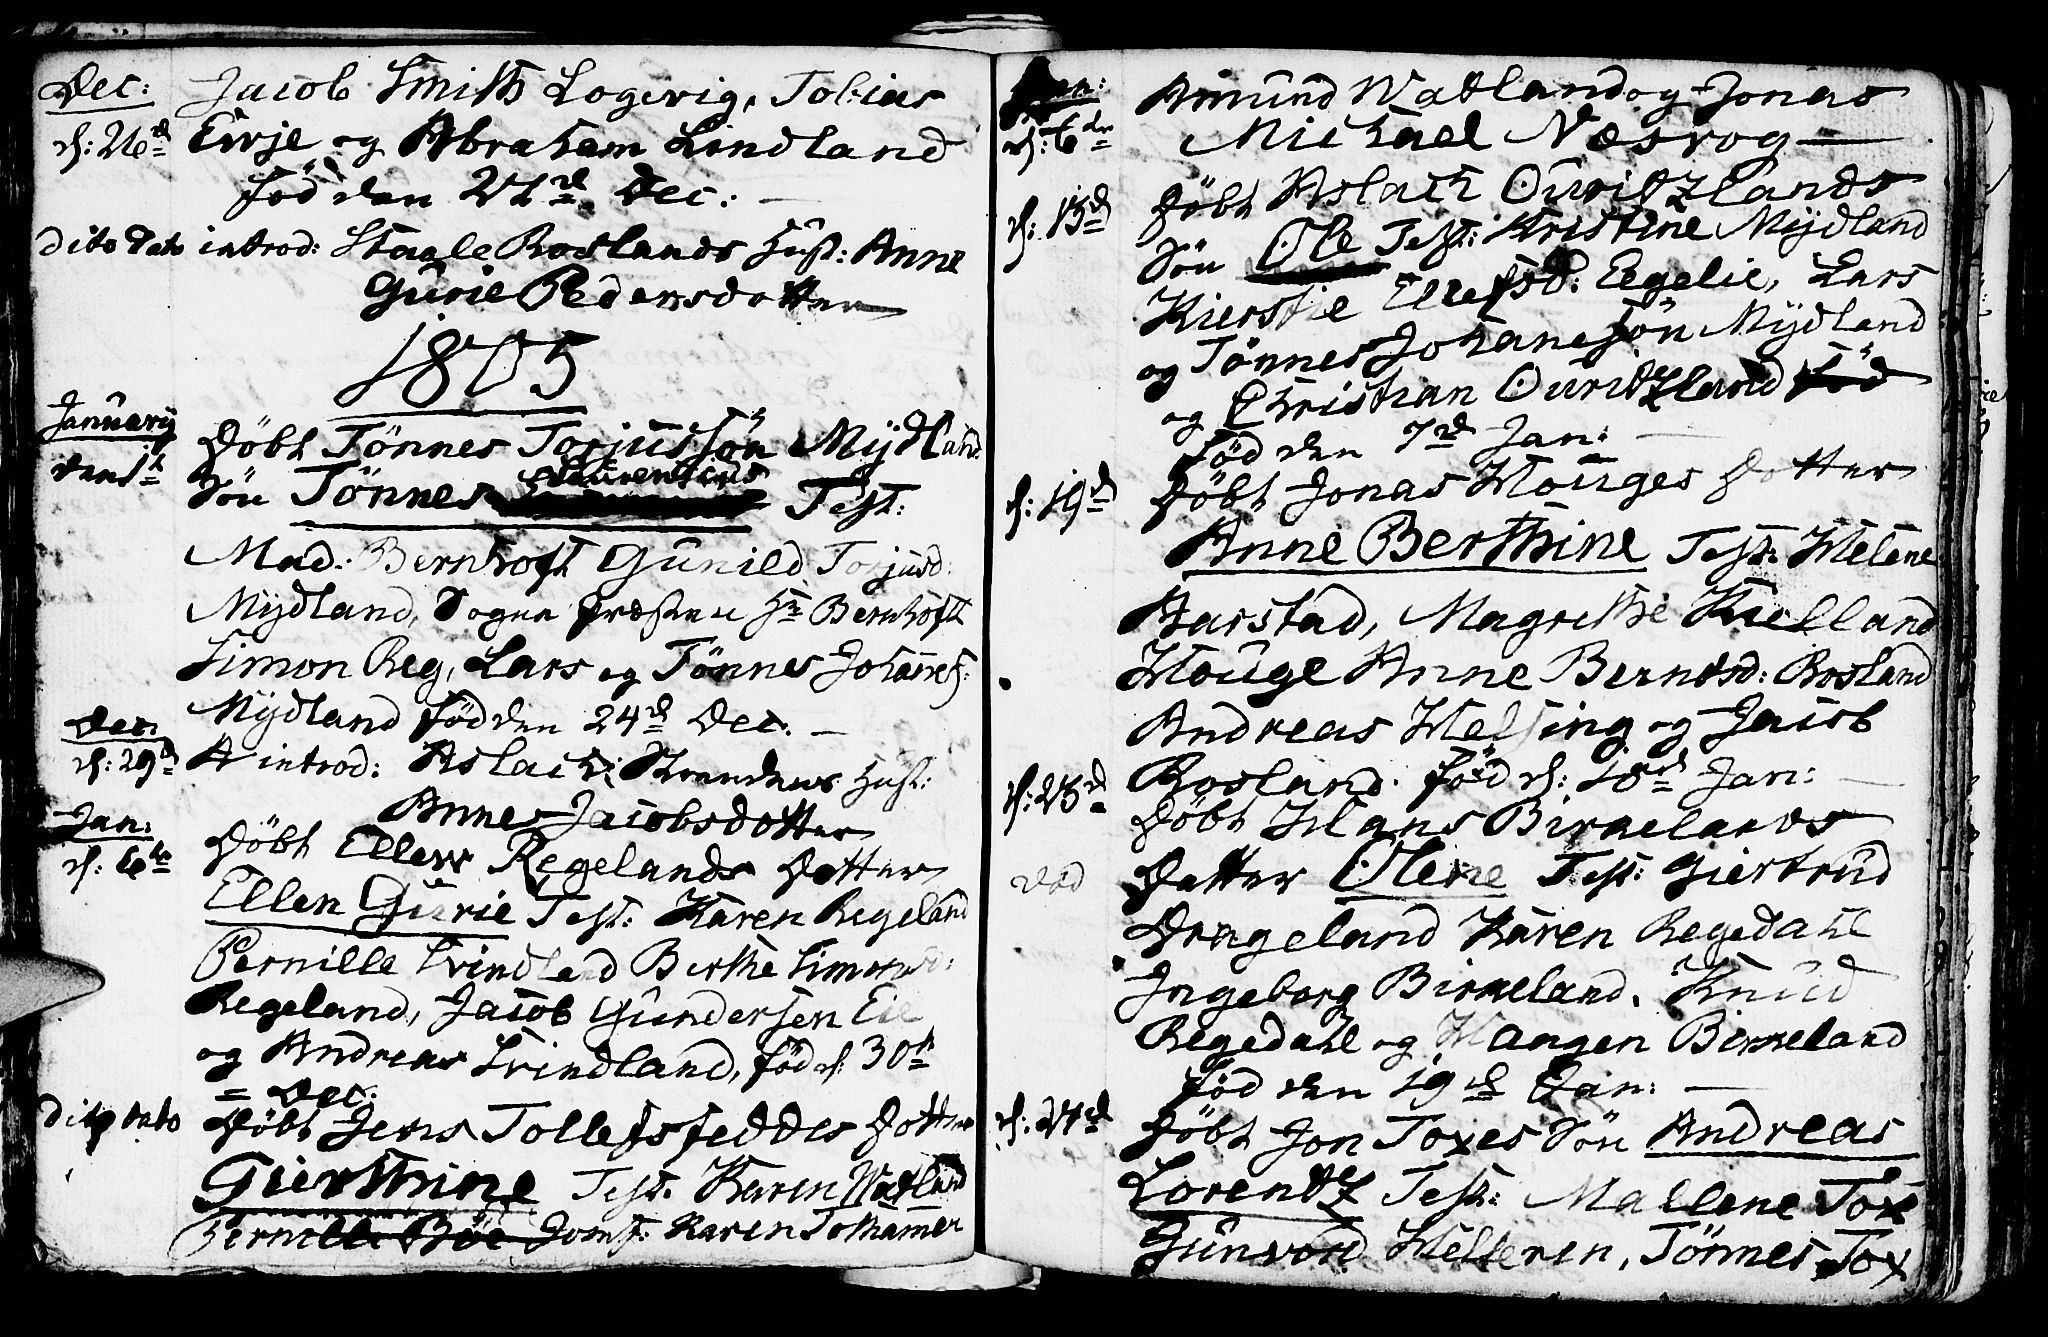 Dec: Jacob Smith Logevig, Tobias
d: 26de Eirje og Abraham Lindland
Föd den 21de Dec: —
dito dato introd: Staale Roslands Hust: Anne
Gurie Pedersdotter
1805
January Döbt Tönnes Torjussön Mydland
den 1te Sön Tönnes Laurentius Test:
Mad: Bernhoft Gunild Torjusd:
Mydland, Sogne Præsten Hr Bernhoft
Simon Reg, Lars og Tönnes Johannes:
Mydland Föd den 24de Dec. —
Dec:
d: 29de introd: Aslach Strandens Hust:
Anne Jacobsdotter
Jan: Döbt Ellens Regelands Dotter
d: 6te Ellen Gurie Test: Karen Regeland
Pernille Svindland Berthe Simonsd:
Regeland, Jacob Gundersen Eie
og Andreas Svindland, Föd d: 30te
= Dec:
dito dato Döbt Jens Tollefsfeddes Dotter
Gierthine Test: Karen Watland
Pernille Böe Jomf: Karen Tothamer
Jan: Amund Watland og Jonas
d: 6te Michael Næsvog —
d: 13de Döbt Aslach Ouritzlands
Sön Ole Test: Kristine Mydland
Kierstie Ellefsd: Eegelie, Lars
og Tönnes Johanesön Mydland
og Christian Ouritzland
Föd den 7de Jan: —
d: 19de Döbt Jonas Houges Dotter
Anne Berthine Test: Helene
Barstad, Magrethe Kielland
Houge Anne Berntsd: Rosland
Andreas Helsing og Jacob
Rosland. Föd d: 18de Jan: —
d: 23de Döbt Hans Birkelands
död Datter Olene Test: Giertrud
Drageland Karen Regedahl
Ingeborg Birkeland, Knud
Regedahl og Haagen Birkeland
Föd den 19de Jan: —
d: 27de Döbt Jon Toxes Sön Andreas
Lorentz Test: Mallene Toxe
Gunvord Helleren, Tönnes Tox